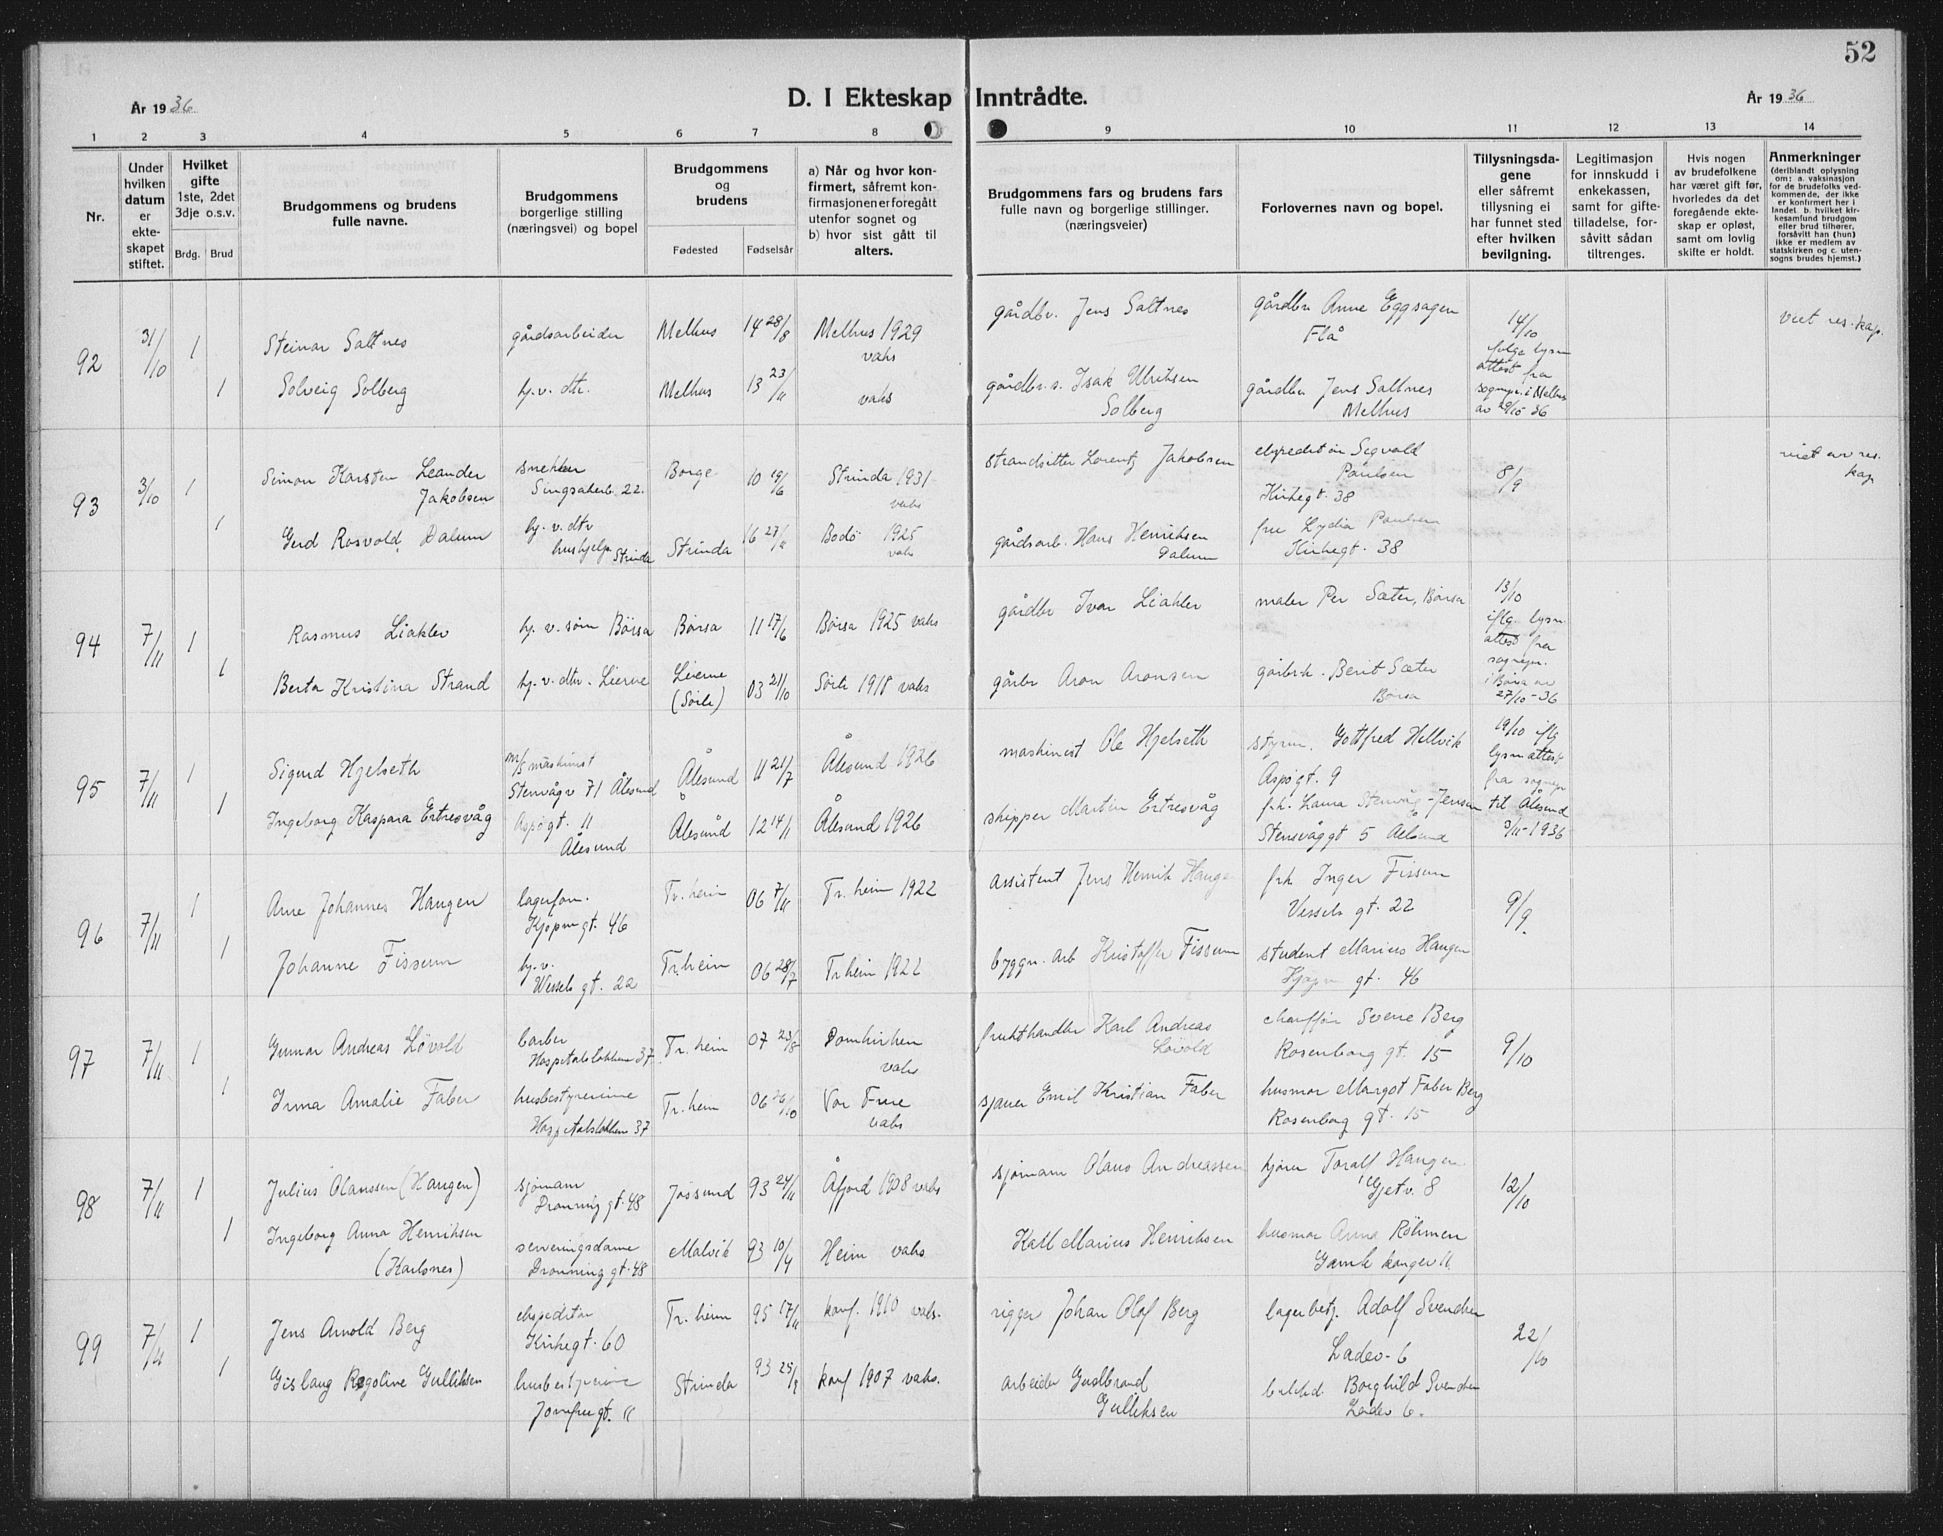 52
År 1936
D. I Ekteskap Inntrådte.
År 1936
1 2 3 4 5 6 7 8 9 10 11 12 13 14
Nr.
Under hvilken datum er ekteskapet stiftet.
Hvilket gifte 1ste, 2det 3dje o.s.v.
Brdg. Brud
Brudgommens og brudens fulle navne.
Brudgommens borgerlige stilling (næringsvei) og bopel
Brudgommens og brudens
Fødested Fødselsår
a) Når og hvor konfirmert, såfremt konfirmasjonen er foregått utenfor sognet og b) hvor sist gått til alters.
Brudgommens fars og brudens fars fulle navn og borgerlige stillinger. (næringsveier)
Forlovernes navn og bopel.
Tillysningsdagene eller såfremt tillysning ei har funnet sted efter hvilken bevilgning.
Legitimasjon for innskudd i enkekassen, samt for giftetilladelse, forsåvitt sådan tiltrenges.
Hvis nogen av brudefolkene har været gift før, hvorledes da det foregående ekteskap er opløst, samt om lovlig skifte er holdt.
Anmerkninger (deriblandt oplysning om: a. vaksinasjon for de brudefolks vedkommende, der ikke er konfirmert her i landet. b. hvilket kirkesamfund brudgom eller brud tilhører, forsåvitt han (hun) ikke er medlem av statskirken og c. utensogns brudes hjemst.)
92 31/10 1 Steinar Saltnes gårdsarbeider Melhus 14 28/8 Melhus 1929 vaks gårdbr. Jens Saltnes gårdbr Arne Eggsagen Flå 14/10 ifølge lysn attest fra sognepr. i Melhus av 20/10-36 viet res. kap.
1 Solveig Solberg hj. v. dtr. Melhus 13 23/11 vaks gårdbr. s. Isak Ulriksen Solberg gårdbr Jens Saltnes Melhus
93 3/10 1 Simon Karsten Leander Jakobsen snekker Singsakerb. 22. Borge 10 19/6 Strinda 1931 vaks strandsitter Lorentz Jakobsen ekspeditør Sigvald Paulsen Kirkegt. 38 8/9 viet av res. kap
1 Gerd Rosvold Dalum hj. v. dtr hushjelp Strinda Strinda 16 27/11 Bodø 1925 vaks gårdsarb. Hans Henriksen Dalum fru Lydia Paulsen Kirkegt. 38
94 7/11 1 Rasmus Liaklev hj. v. sønn Børsa Børsa 11 17/6 Børsa 1925 vaks gårdbr Ivar Liaklev maler Per Sæter, Børsa 13/10 iflg. lysn. attest fra sognepr. i Børsa av 27/10-36
1 Berta Kristina Strand hj. v. dtr. Lierne Lierne (Sørli) 03 21/10 Sørli 1918 vaks gårbr Aron Aronsen Berit Sæter Børsa
95 7/11 1 Sigurd Hjelseth m/s maskinist Stenvågv 71 Ålesund Ålesund 11 21/7 Ålesund 1926 maskinist Ole Hjelseth styrm. Gottfred Hellvik Aspøgt. 9 19/10 iflg lysn attest fra sognepr til Ålesund 3/11-1936
1 Ingeborg Kaspara Ertresvåg Aspøgt. 11 Ålesund Ålesund 12 14/1 Ålesund 1926 skipper Martin Ertresvåg frk. Laura Stenvåg-Jensen Stensvåggt 5 Aalesund
96 7/11 1 Arne Johannes Haugen lagerform. Kjøpm gt. 46 Tr. heim 06 7/11 Tr. heim 1922 assistent Jens Henrik Haugen frk Inger Fissum Vessels gt. 22 9/9.
1 Johanne Fissum hj. v. Wessels gt. 22 Tr.heim 06 28/7 Tr heim 1922 byggn. arb Kristoffer Fissum student Marius Haugen Kjøpm gt. 46
97 7/11 1 Gunnar Andreas Løvold barber Hospitalsløkken 37. Tr. heim 07 23/8 Domkirken vaks frukthandler Karl Andreas Løvold chauffør Sverre Berg Rosenborg gt. 15 9/10
1 Irma Amalie Faber husbestyrerinne Hospitalsløkken 37 Tr. heim 06 26/10 Vor Frue vaks sjauer Emil Kristian Faber husmor Margot Faber Berg Rosenborg gt. 15
98 7/11 1 Julius Olaussen (Haugen) sjømann Dronning gt. 48 Jøssund 93 24/11 Åfjord 1908 vaks sjømann Olaus Andreassen kjører Toralf Haugen Gjetv. 8 12/10
1 Ingeborg Anna Henriksen (Karlsnes) serveringsdame Dronning gt. 48 Malvik 93 10/4 Heim vaks Karl Marius Henriksen husmor Anna Röhmen Gamle kongev 11.
99 7/11 1 Jens Arnold Berg ekspeditør Kirkegt. 60 Tr. heim 95 17/11 konf. 1910 vaks. rigger Johan Olaf Berg lagerbetj. Adolf Svendsen Ladev. 6 22/10
1 Gislaug Regoline Gulliksen husbestyrerinne Jomfru gt. 11 Strinda 93 25/9 konf 1907 vaks. arbeider Gudbrand Gulliksen Borghild Svendsen Ladev 6.